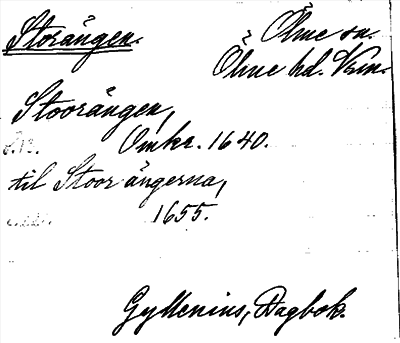 Storängen.
Ölme sn.
Ölme hd. Vrm.
Stoorängen,
Omkr. 1640.
til Stoor ängerna,
1655.
Gyllenius, Dagbok.